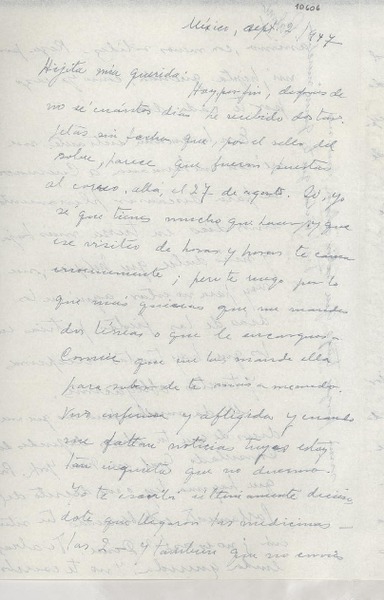 10606
México, sept. 2/947
Hijita mía querida:
Hoy por fin, después de
no sé cuántos días he recibido dos tar-
jetas sin fecha que, por el sello del
sobre, parece que fueron puestas
al correo, allá, el 27 de agosto. Sí, yo
sé que tienes mucho que hacer y que
ese visiteo de horas y horas te cansa
enormemente; pero te ruego por lo
que más quieras que me mandes
dos líneas o que le encargues a
Connie que me las mande ella
para saber de ti más a menudo.
Vivo enferma y afligida y cuando
me faltan noticias tuyas estoy
tan inquieta que no duermo.
Ya te escribí últimamente dicién-
dote que llegaron las medicinas —
las 2 y también que no envíes